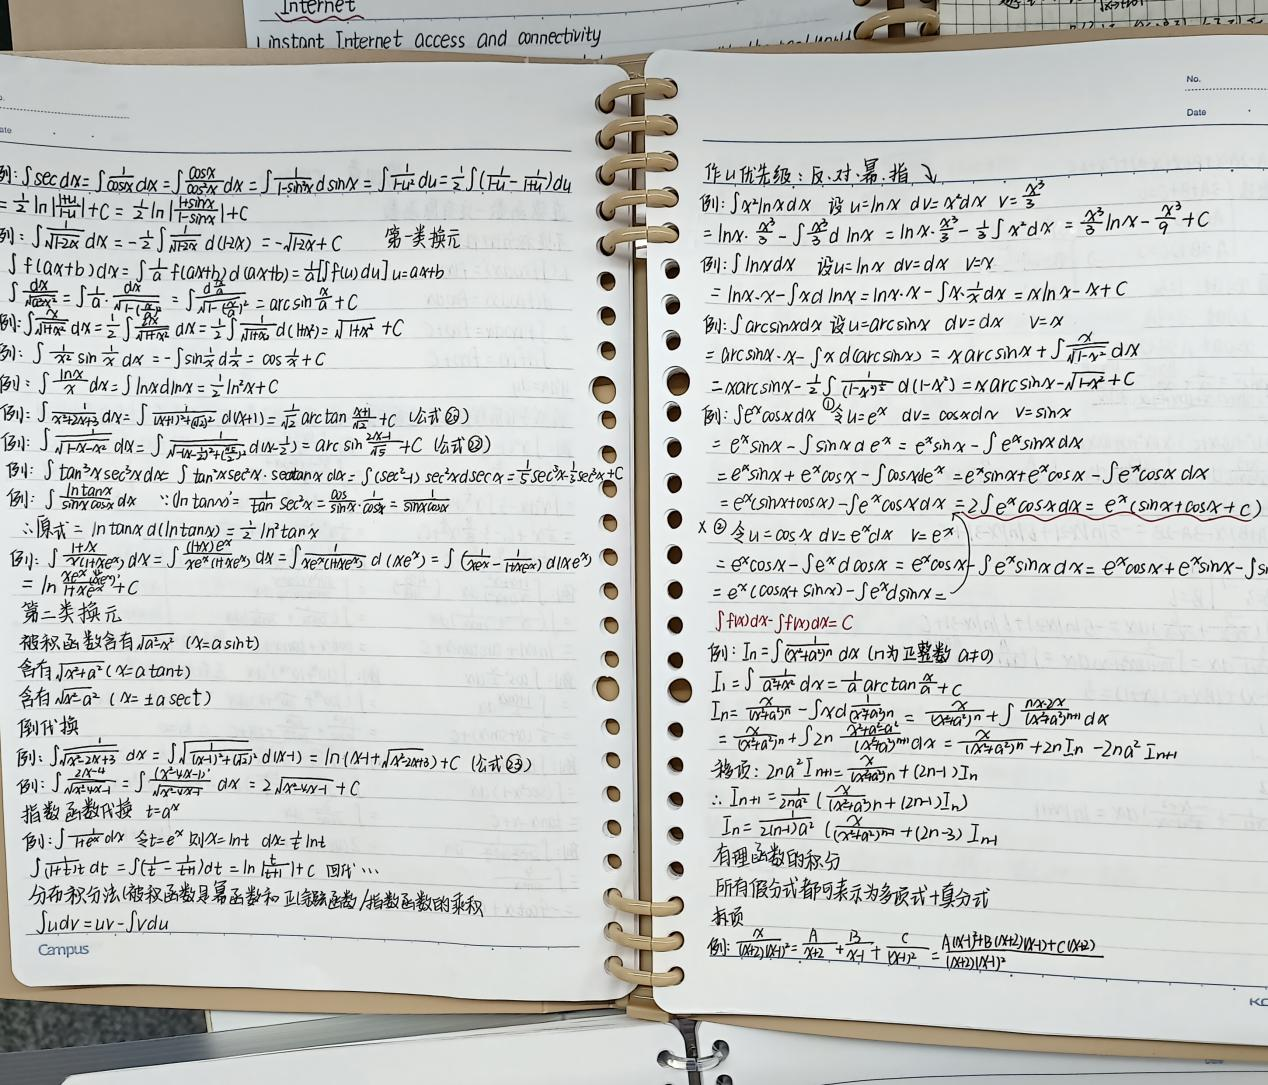 Internet
instant Internet access and connectivity
Date
例: ∫secdx = ∫1/cosx dx = ∫cosx/cos²x dx = ∫1/(1-sin²x) dsinx = ∫1/(1-u²) du = 1/2 ∫(1/(1-u) - 1/(1+u))du
= 1/2 ln|(1+u)/(1-u)|+C = 1/2 ln|(1+sinx)/(1-sinx)|+C
例: ∫1/√(1-2x) dx = -1/2 ∫1/√(1-2x) d(1-2x) = -√(1-2x)+C 第一类换元
∫f(ax+b)dx = ∫1/a f(ax+b)d(ax+b) = 1/a[∫f(u)du] u=ax+b
∫dx/√(a²-x²) = ∫1/a · dx/√(1-(x/a)²) = ∫d(x/a)/√(1-(x/a)²) = arcsin x/a + C
例: ∫x/√(1+x²) dx = 1/2 ∫2x/√(1+x²) dx = 1/2 ∫1/√(1+x²) d(1+x²) = √(1+x²) +C
例: ∫1/x² sin 1/x dx = -∫sin 1/x d 1/x = cos 1/x + C
例: ∫lnx/x dx = ∫lnxdlnx = 1/2 ln²x+C
例: ∫1/(x²+2x+3) dx = ∫1/((x+1)²+(√2)²) d(x+1) = 1/√2 arctan (x+1)/√2 +C
例: ∫1/√(1-x-x²) dx = arcsin (2x-1)/√5 +C
例: ∫tan³xsec³xdx = ∫tan²xsec²x·secxtanxdx = ∫(sec²-1)sec²xdsecx = 1/5 sec⁵x-1/3 sec³x+C
例: ∫lntanx/(sinxcosx) dx ∵(lntanx)' = 1/tan sec²x = cos/sinx · 1/cos²x = 1/(sinxcosx)
∴原式 = lntanxd(lntanx) = 1/2 ln²tanx
例: ∫(1+x)/(x(1+xeˣ)) dx = ∫(1+x)eˣ/(xeˣ(1+xeˣ)) dx = ∫1/(xeˣ(1+xeˣ)) d(xeˣ) = ∫(1/xeˣ - 1/(1+xeˣ))d(xeˣ)
第二类换元
被积函数含有√(a²-x²) (x=asint)
含有√(x²+a²) (x=atant)
含有√(x²-a²) (x=±asect)
倒代换
例: ∫1/√(x²-2x+3) dx = ∫1/√((x-1)²+(√2)²) d(x-1) = ln(x-1+√(x²-2x+3))+C (公式㉓)
例: ∫(2x-4)/√(x²-4x-1) = ∫(x²-4x-1)'/√(x²-4x-1) dx = 2√(x²-4x-1)+C
指数函数代换 t=aˣ
例: ∫1/(1+eˣ) dx 令t=eˣ 则x=lnt dx=1/t lnt
∫1/((1+t)t) dt = ∫(1/t - 1/(t+1))dt = ln|t/(t+1)|+C 回代…
分布积分法(被积函数是幂函数和正/余弦函数/指数函数的乘积
∫udv=uv-∫vdu
Campus
No.
Date
作u优先级: 反.对.幂.指 ↘
例: ∫x²lnxdx 设u=lnx dv=x²dx v=x³/3
= lnx·x³/3 - ∫x³/3 dlnx = lnx·x³/3 - 1/3∫x²dx = x³/3 lnx - x³/9 + C
例: ∫lnxdx 设u=lnx dv=dx v=x
= lnx·x-∫xdlnx = lnx·x-∫x·1/x dx = xlnx-x+C
例: ∫arcsinxdx 设u=arcsinx dv=dx v=x
= arcsinx·x-∫xd(arcsinx) = xarcsinx+∫x/√(1-x²) dx
= xarcsinx-√(1-x²)+C
例: ∫eˣcosxdx ①令u=eˣ dv=cosxdx v=sinx
= eˣsinx-∫sinxdeˣ = eˣsinx-∫eˣsinxdx
= eˣsinx+eˣcosx-∫cosxdeˣ = eˣsinx+eˣcosx-∫eˣcosxdx
= eˣ(sinx+cosx)-∫eˣcosxdx = 2∫eˣcosxdx = eˣ(sinx+cosx+C)
x ②令u=cosx dv=eˣdx v=eˣ
= eˣcosx-∫eˣdcosx = eˣcosx-∫eˣsinxdx = eˣcosx+eˣsinx-∫sin
= eˣ(cosx+sinx)-∫eˣdsinx=
∫f(x)dx-∫f(x)dx=C
例: Iₙ=∫1/(x²+a²)ⁿ dx (n为正整数 a≠0)
I₁=∫1/(a²+x²) dx = 1/a arctan x/a +C
Iₙ = x/(x²+a²)ⁿ - ∫xd 1/(x²+a²)ⁿ = x/(x²+a²)ⁿ + ∫nx·2x/(x²+a²)ⁿ⁺¹ dx
= x/(x²+a²)ⁿ+∫2n (x²+a²-a²)/(x²+a²)ⁿ⁺¹ dx = x/(x²+a²)ⁿ+2nIₙ-2na²Iₙ₊₁
移项: 2na²Iₙ₊₁ = x/(x²+a²)ⁿ+(2n-1)Iₙ
∴ Iₙ₊₁ = 1/2na² (x/(x²+a²)ⁿ+(2n-1)Iₙ)
Iₙ = 1/2(n-1)a² (x/(x²+a²)ⁿ⁻¹+(2n-3)Iₙ₋₁
有理函数的积分
所有假分式都可表示为多项式+真分式
拆项
例: x/((x+2)(x-1)²) = A/(x+2) + B/(x-1) + C/(x-1)² = (A(x-1)²+B(x+2)(x-1)+C(x+2))/((x+2)(x-1)²)